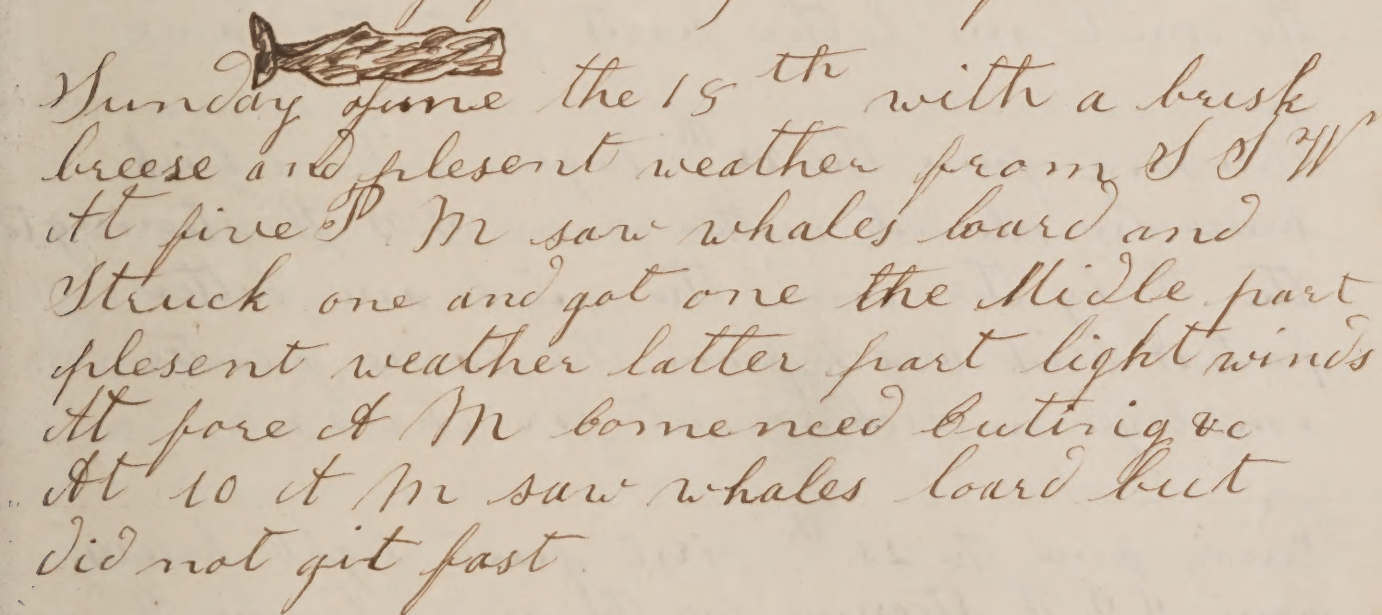 Sunday June the 15th with a brisk
breese and plesent weather from S S W
At five P M saw whales loard and
Struck one and got one the Midle part
plesent weather latter part light winds
At fore A M Comenced Cuting &c
At 10 A M saw whales loard but
did not git fast